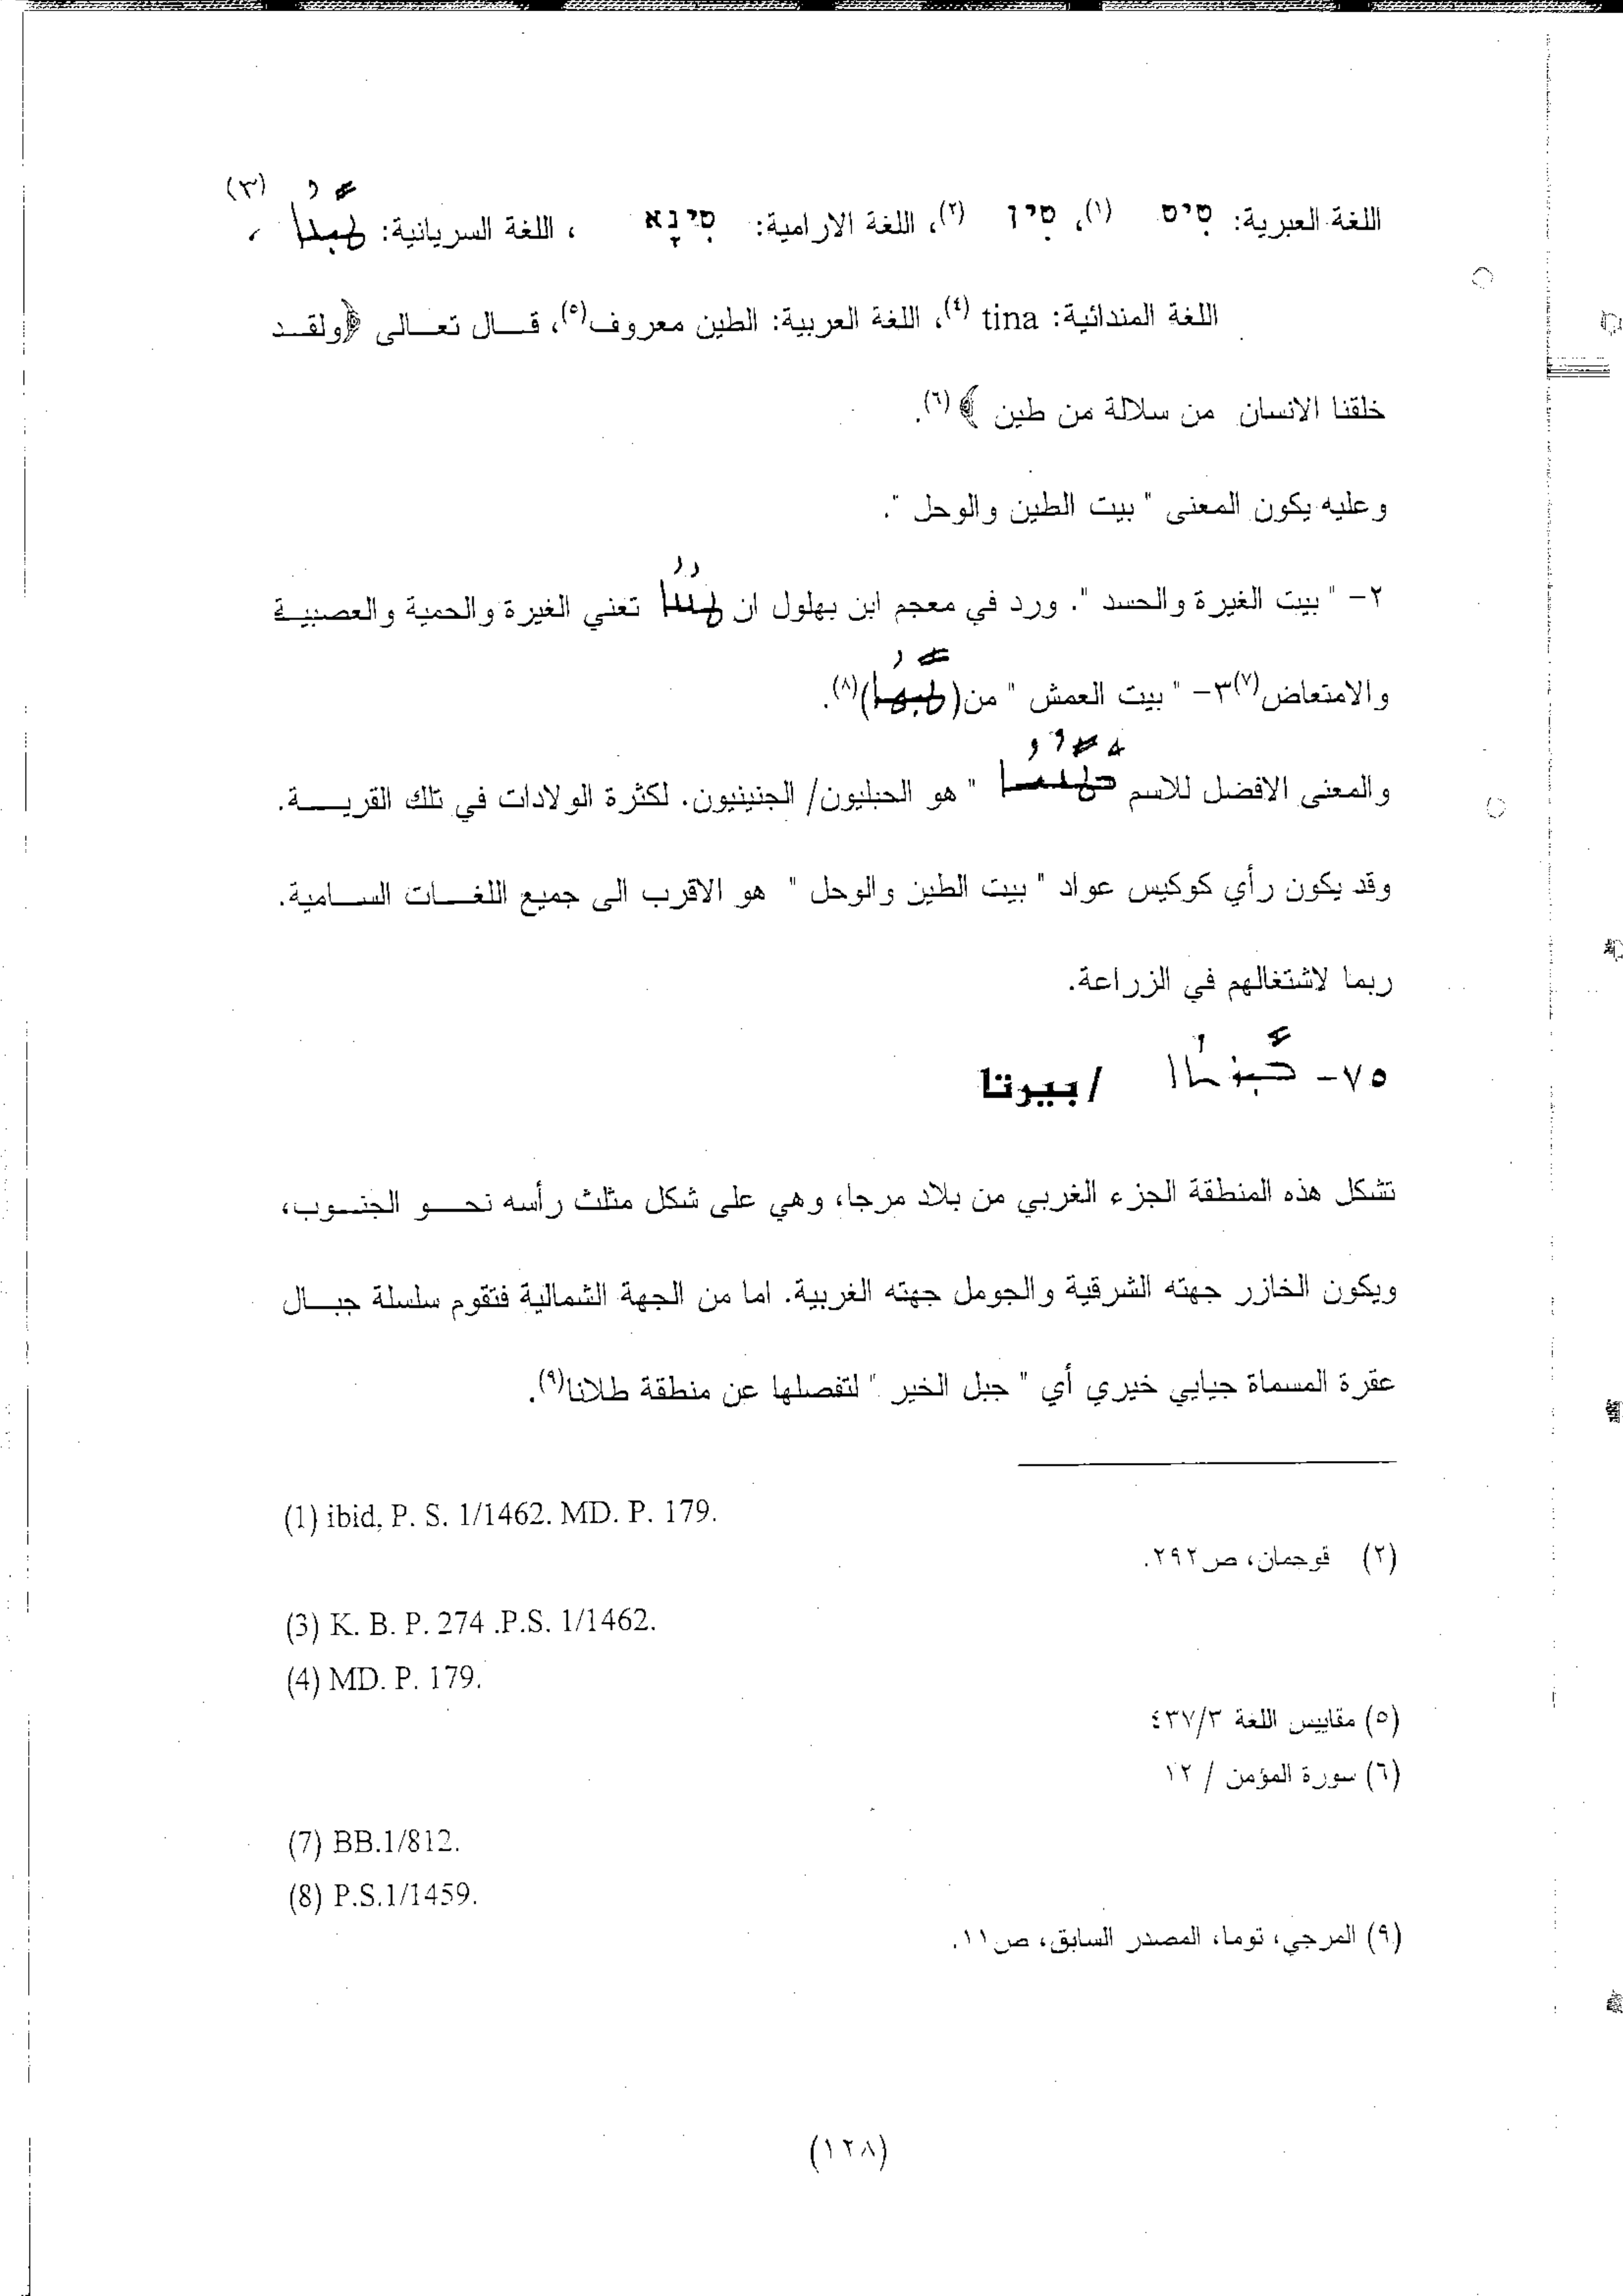 اللغة العبرية: טיט (١)، טין (٢)، اللغة الارامية: טִינָא ، اللغة السريانية: ܛܝܢܐ (٣) ،
اللغة المندائية: tina (٤)، اللغة العربية: الطين معروف(٥)، قال تعالى ﴿ولقد
خلقنا الانسان من سلالة من طين ﴾(٦).
وعليه يكون المعنى " بيت الطين والوحل ".
٢- " بيت الغيرة والحسد ". ورد في معجم ابن بهلول ان ܛܢܢܐ تعني الغيرة والحمية والعصبية
والامتعاض(٧)٣- " بيت العمش " من()(٨).
والمعنى الافضل للاسم " هو الحبليون/ الجنينيون. لكثرة الولادات في تلك القرية.
وقد يكون رأي كوكيس عواد " بيت الطين والوحل " هو الاقرب الى جميع اللغات السامية.
ربما لاشتغالهم في الزراعة.
٧٥- ܒܝܪܬܐ /بيرتا
تشكل هذه المنطقة الجزء الغربي من بلاد مرجا، وهي على شكل مثلث رأسه نحو الجنوب،
ويكون الخازر جهته الشرقية والجومل جهته الغربية. اما من الجهة الشمالية فتقوم سلسلة جبال
عقرة المسماة جيايي خيري أي " جبل الخير " لتفصلها عن منطقة طلانا(٩).
(1) ibid, P. S. 1/1462. MD. P. 179.
(٢) قوجمان، ص٢٩٢.
(3) K. B. P. 274 .P.S. 1/1462.
(4) MD. P. 179.
(٥) مقاييس اللغة ٤٣٧/٣
(٦) سورة المؤمن / ١٢
(7) BB.1/812.
(8) P.S.1/1459.
(٩) المرجي، توما، المصدر السابق، ص١١.
(١٢٨)